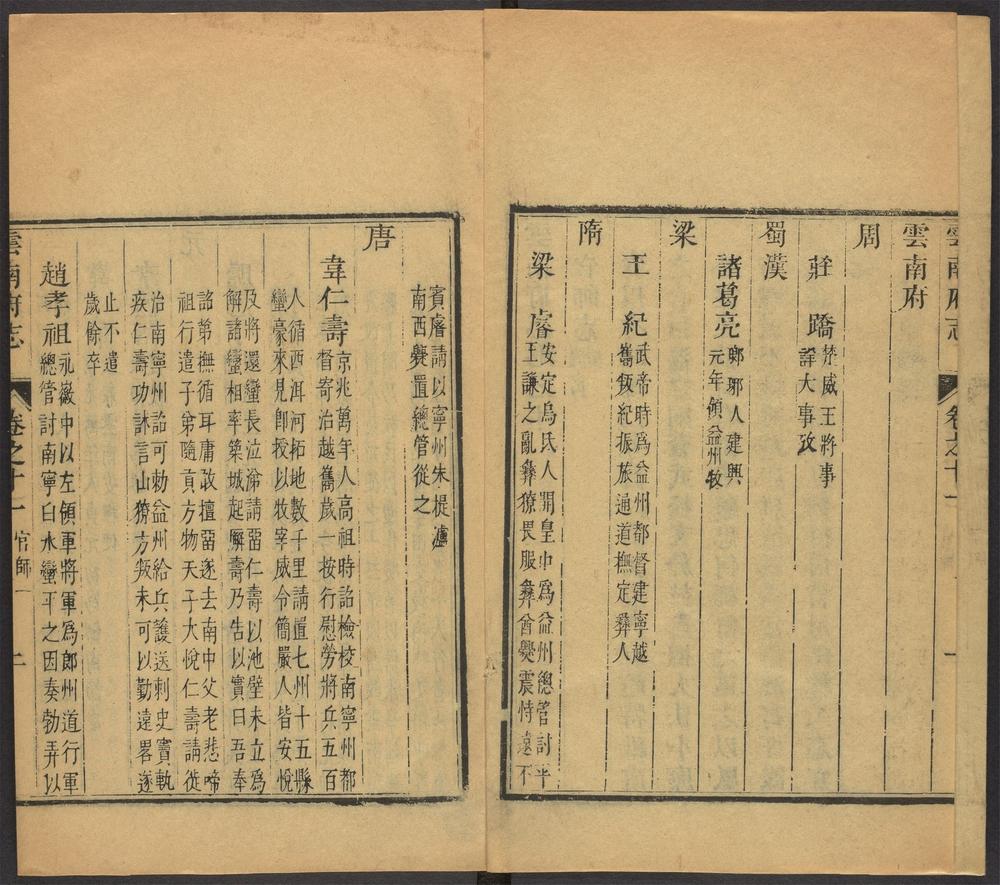 雲南府志 卷之十一 一
雲南府
周
莊蹻 楚威王將事
詳大事攷
蜀漢
諸葛亮 瑯琊人建興
元年領益州牧
梁
王紀 武帝時爲益州都督建寧越
巂叛紀振旅通道撫定彝人
隋
梁睿 安定烏氏人開皇中爲益州總管討平
王謙之亂彝獠畏服彝酋爨震恃遠不
賓睿請以寧州朱提
南西爨置總管從之
唐
韋仁壽 京兆萬年人高祖時詔檢校南寧州都
督寄治越巂歲一按行慰勞將兵五百
人循西洱河拓地數千里請置七州十五縣
蠻豪來見卽授以牧宰威令簡嚴人皆安悅
及將還蠻長泣涕請畱仁壽以池壁未立爲
解諸蠻相率築城起廨壽乃告以實曰吾奉
詔第撫循耳庸敢擅畱遂去南中父老悲啼
祖行遣子弟隨貢方物天子大悅仁壽請徙
治南寧州詔可勅益州給兵護送刺史竇軌
疾仁壽功訹言山獠方叛未可以勤遠畧遂
止不遣
歲餘卒
趙孝祖 永徽中以左領軍將軍爲郎州道行軍
總管討南寧白水蠻平之因奏勃弄以
雲南府志 卷之十一 官師一 二